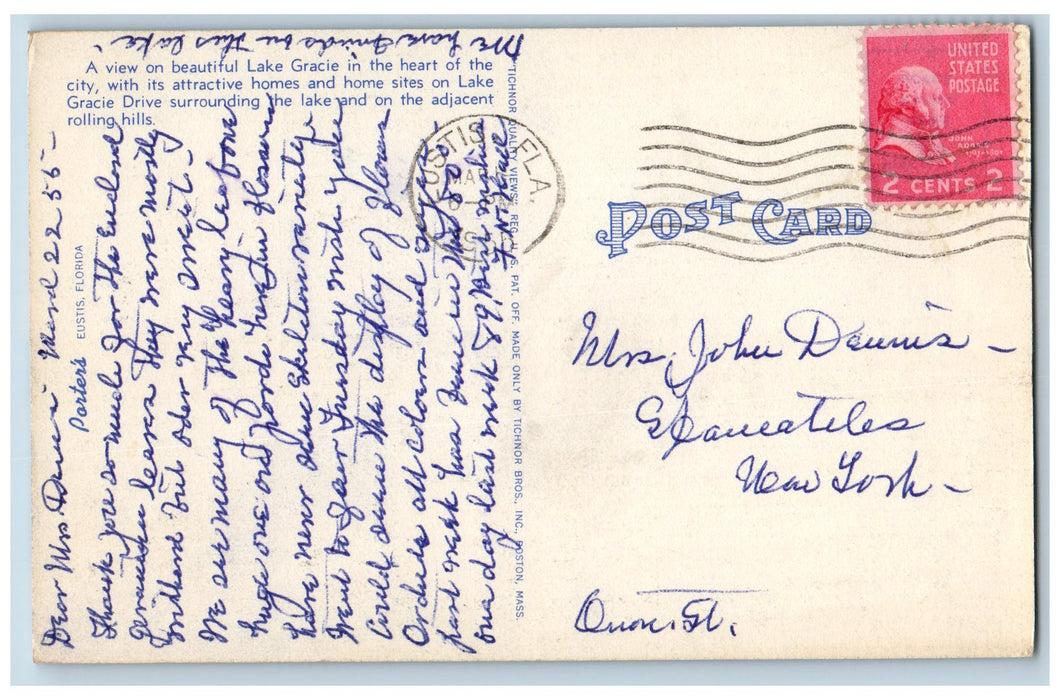 A view on beautiful Lake Gracie in the heart of the
city, with its attractive homes and home sites on Lake
Gracie Drive surrounding the lake and on the adjacent
rolling hills.
UNITED
STATES
POSTAGE
JOHN
ADAMS
2 CENTS 2
EUSTIS, FLA.
MAR
POST CARD
Mrs. John Dennis –
Skaneateles
New York –
Onon. St.
Porter's EUSTIS, FLORIDA
"TICHNOR QUALITY VIEWS," REG. U. S. PAT. OFF. MADE ONLY BY TICHNOR BROS., INC., BOSTON, MASS.
Dear Mrs Dennis March 22 55 –
Thank you so much for the enclosed
leaves They were mostly
and odor very sweet –
We see many of the heavy leaf one
huge one
have never seen
Went to Tuesday wish you
could seen the display of flowers
Orchids all colors and
past week has been in the 80s
one day last week 89
We have friends on this lake.